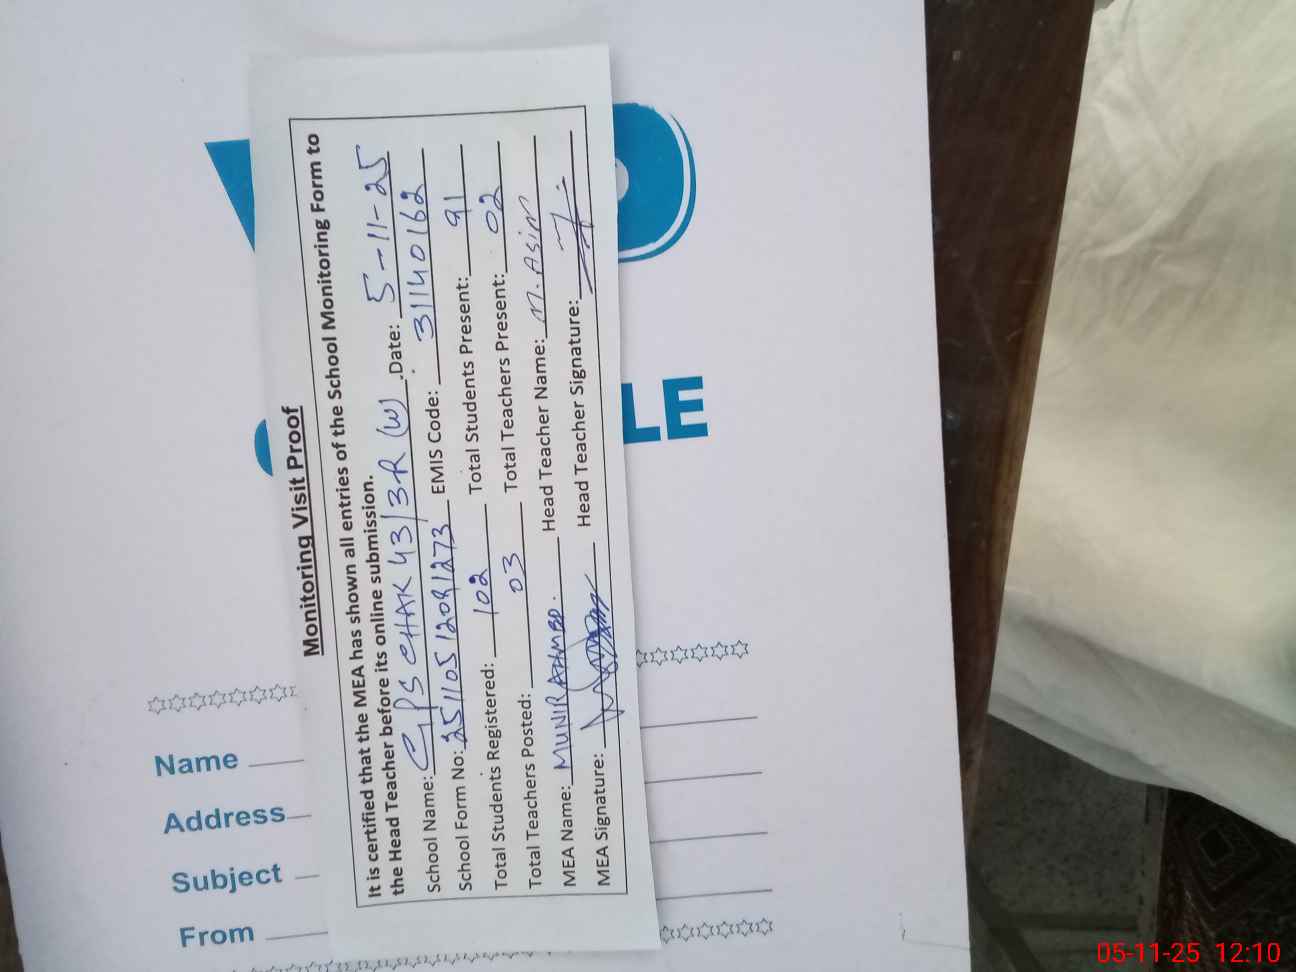 Monitoring Visit Proof
It is certified that the MEA has shown all entries of the School Monitoring Form to
the Head Teacher before its online submission.
School Name: GPS CHAK 43/3R (W) .Date: 5-11-25
School Form No: 251105 12091273 EMIS Code: 31140162
Total Students Registered: 102 Total Students Present: 91
Total Teachers Posted: 03 Total Teachers Present: 02
MEA Name: MUNIR AHMED. Head Teacher Name: M. Asim
MEA Signature: Head Teacher Signature:
LE
Name
Address
Subject
From
05-11-25 12:10